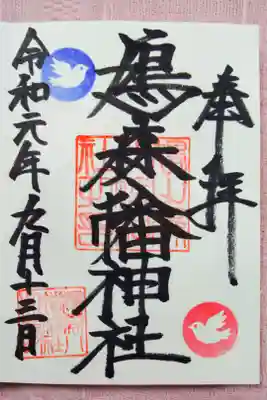 奉拝
鳩森八幡神社
令和元年九月十三日